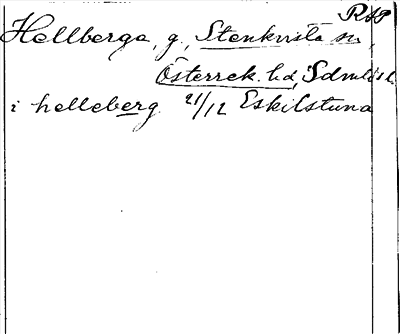 R49
Hellberga, g., Stenkvista sn,
Österrek. hd, Sdml
i helleberg 21/12 Eskilstuna